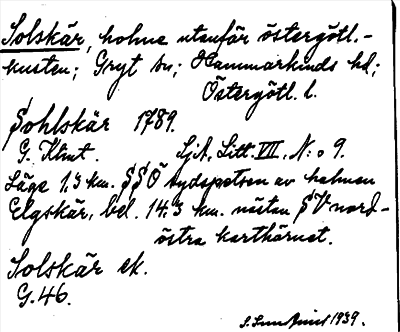 Solskär, holme utanför östergötl.-
kusten; Gryt sn; Hammarkinds hd;
Östergötl. l.
Sohlskär 1789.
G. Klint. Sj.A. Litt. VII, N:o 9.
Läge 1,3 km. SSÖ sydspetsen av holmen
Elgskär, bel. 14,3 km. nästan SV nord-
östra karthörnet.
Solskär ek.
G.46.
1939.